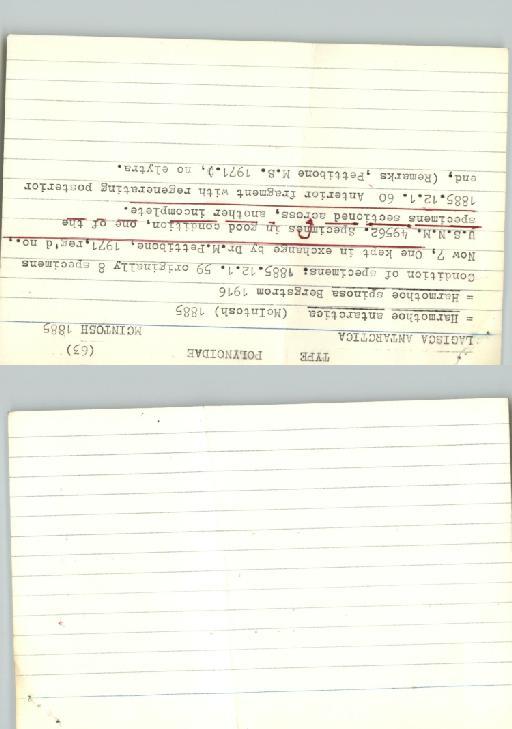 TYPE POLYNOIDAE (63)
LAGISCA ANTARCTICA MCINTOSH 1885
= Harmothoe antarctica (McIntosh) 1885
= Harmothoe spinosa Bergstrom 1916
Condition of specimens: 1885.12.1. 59 originally 8 specimens
Now 7, One kept in exchange by Dr.M.Pettibone, 1971,reg'd no.,
U.S.N.M. 49562. Specimens in good condition, one of the
specimens sectioned across, another incomplete.
1885.12.1. 60 Anterior fragment with regenerating posterior
end, (Remarks ,Pettibone M.S. 1971.), no elytra.